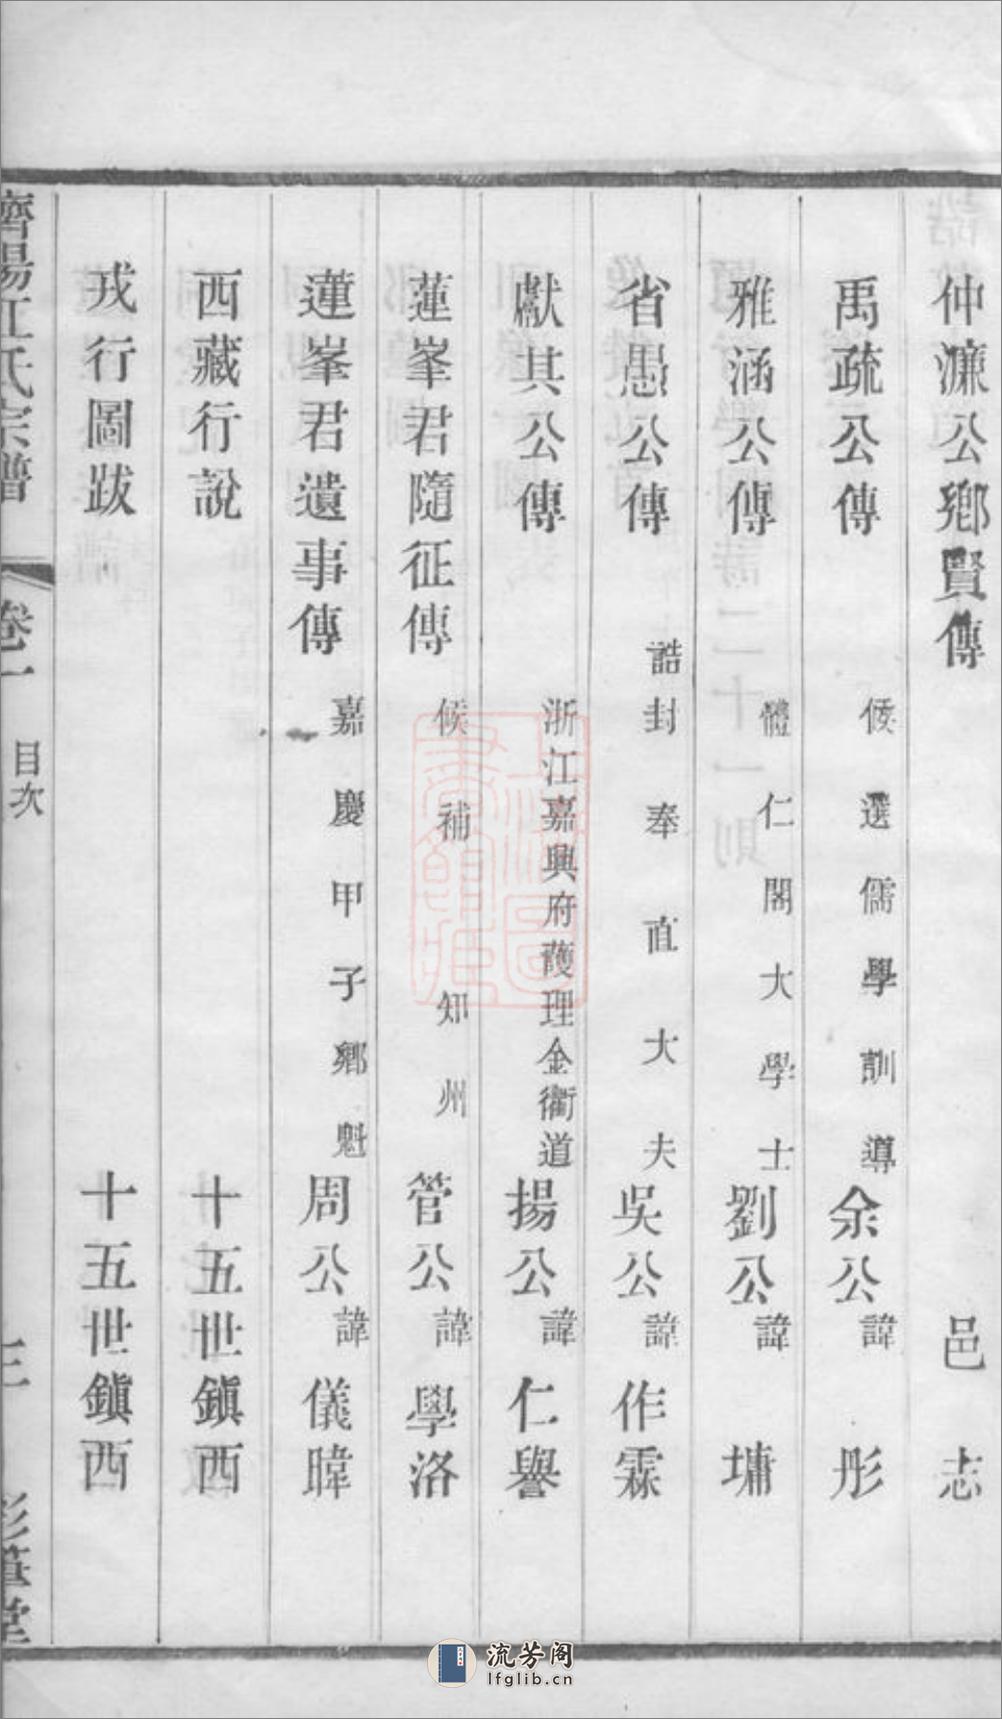 仲濂公鄉賢傳 邑志
禹疏公傳 候選儒學訓導 余公諱彤
雅涵公傳 體仁閣大學士 劉公諱墉
省愚公傳 誥封奉直大夫 吳公諱作霖
獻其公傳 浙江嘉興府護理金衢道 揚公諱仁譽
蓮峯君隨征傳 候補知州 管公諱學洛
蓮峯君遺事傳 嘉慶甲子鄉魁 周公諱儀暐
西藏行說 十五世鎮西
戎行圖跋 十五世鎮西
濟陽江氏宗譜 卷一 目次 三
流芳阁
lfglib.cn